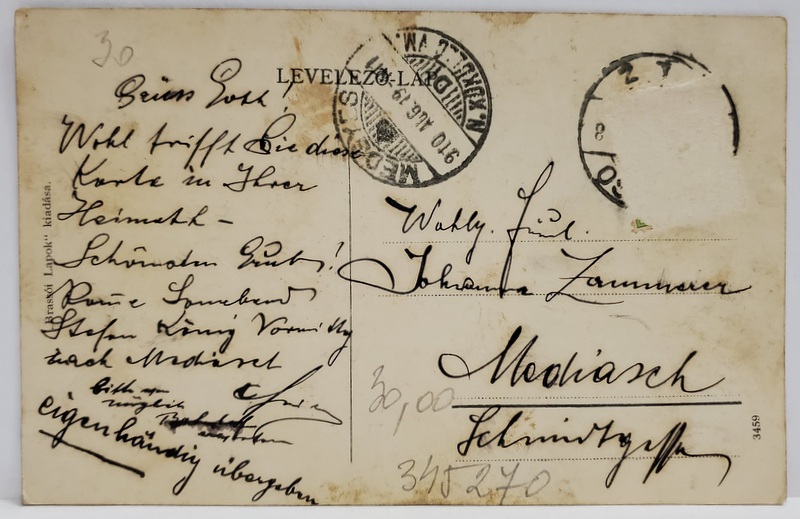 30
LEVELEZŐ-LAP
MEDGYES
910 AUG. 19
N.KÜKÜLLŐ VM.
D
Grüss Gott!
Wohl trifft Sie diese
Karte in Ihrer
Heimath –
Schönsten Gruß!
Sonnabend
Stefan König Vormittg
nach Mediasch
bitte
möglich
eigenhändig übergeben
"Brassói Lapok" kiadása.
Wohlg. Fräul.
Johanna Zammerer
Mediasch
Schmidtgasse
30,00
345270
3459